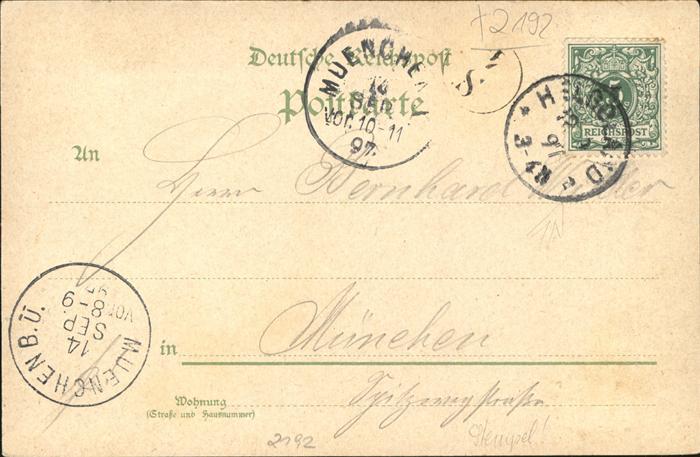 +2192
Deutsche Reichspost
Postkarte
MUENCHEN
SEP
VOR. 10-11
97.
S.
5
REICHSPOST
HELGOLAND
97
3-4N.
An
Herrn Bernhard
in München
Wohnung
(Straße und Hausnummer)
Spitzwegstraße
MUENCHEN B.Ü.
14
SEP.
8-9
VOR.
97
2192
Stempel!